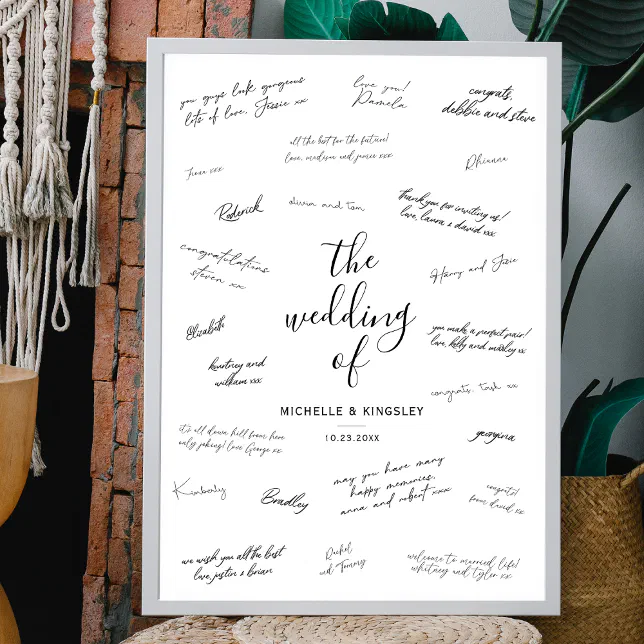 you guys look gorgeous
lots of love, Jessie xx
love you!
Pamela
congrats,
debbie and steve
all the best for the future!
love, madison and jamie xxx
Fiona xxx
Rhianna
Roderick
olivia and tom
thank you for inviting us!
love, laura & david xxx
congratulations
steven xx
the
wedding
of
Harry and
Elizabeth
you make a perfect pair!
love, kelly and marley xx
kourtney and
william xxx
congrats, xx
MICHELLE & KINGSLEY
10.23.20XX
it's all down hill from here
only joking! love George xx
georgina
may you have many
happy memories,
anna and robert xxxx
Kimberly
Bradley
congrats!
from david xx
we wish you all the best
love, justin & brian
Rachel
and Tommy
welcome to married life!
whitney and tyler xx